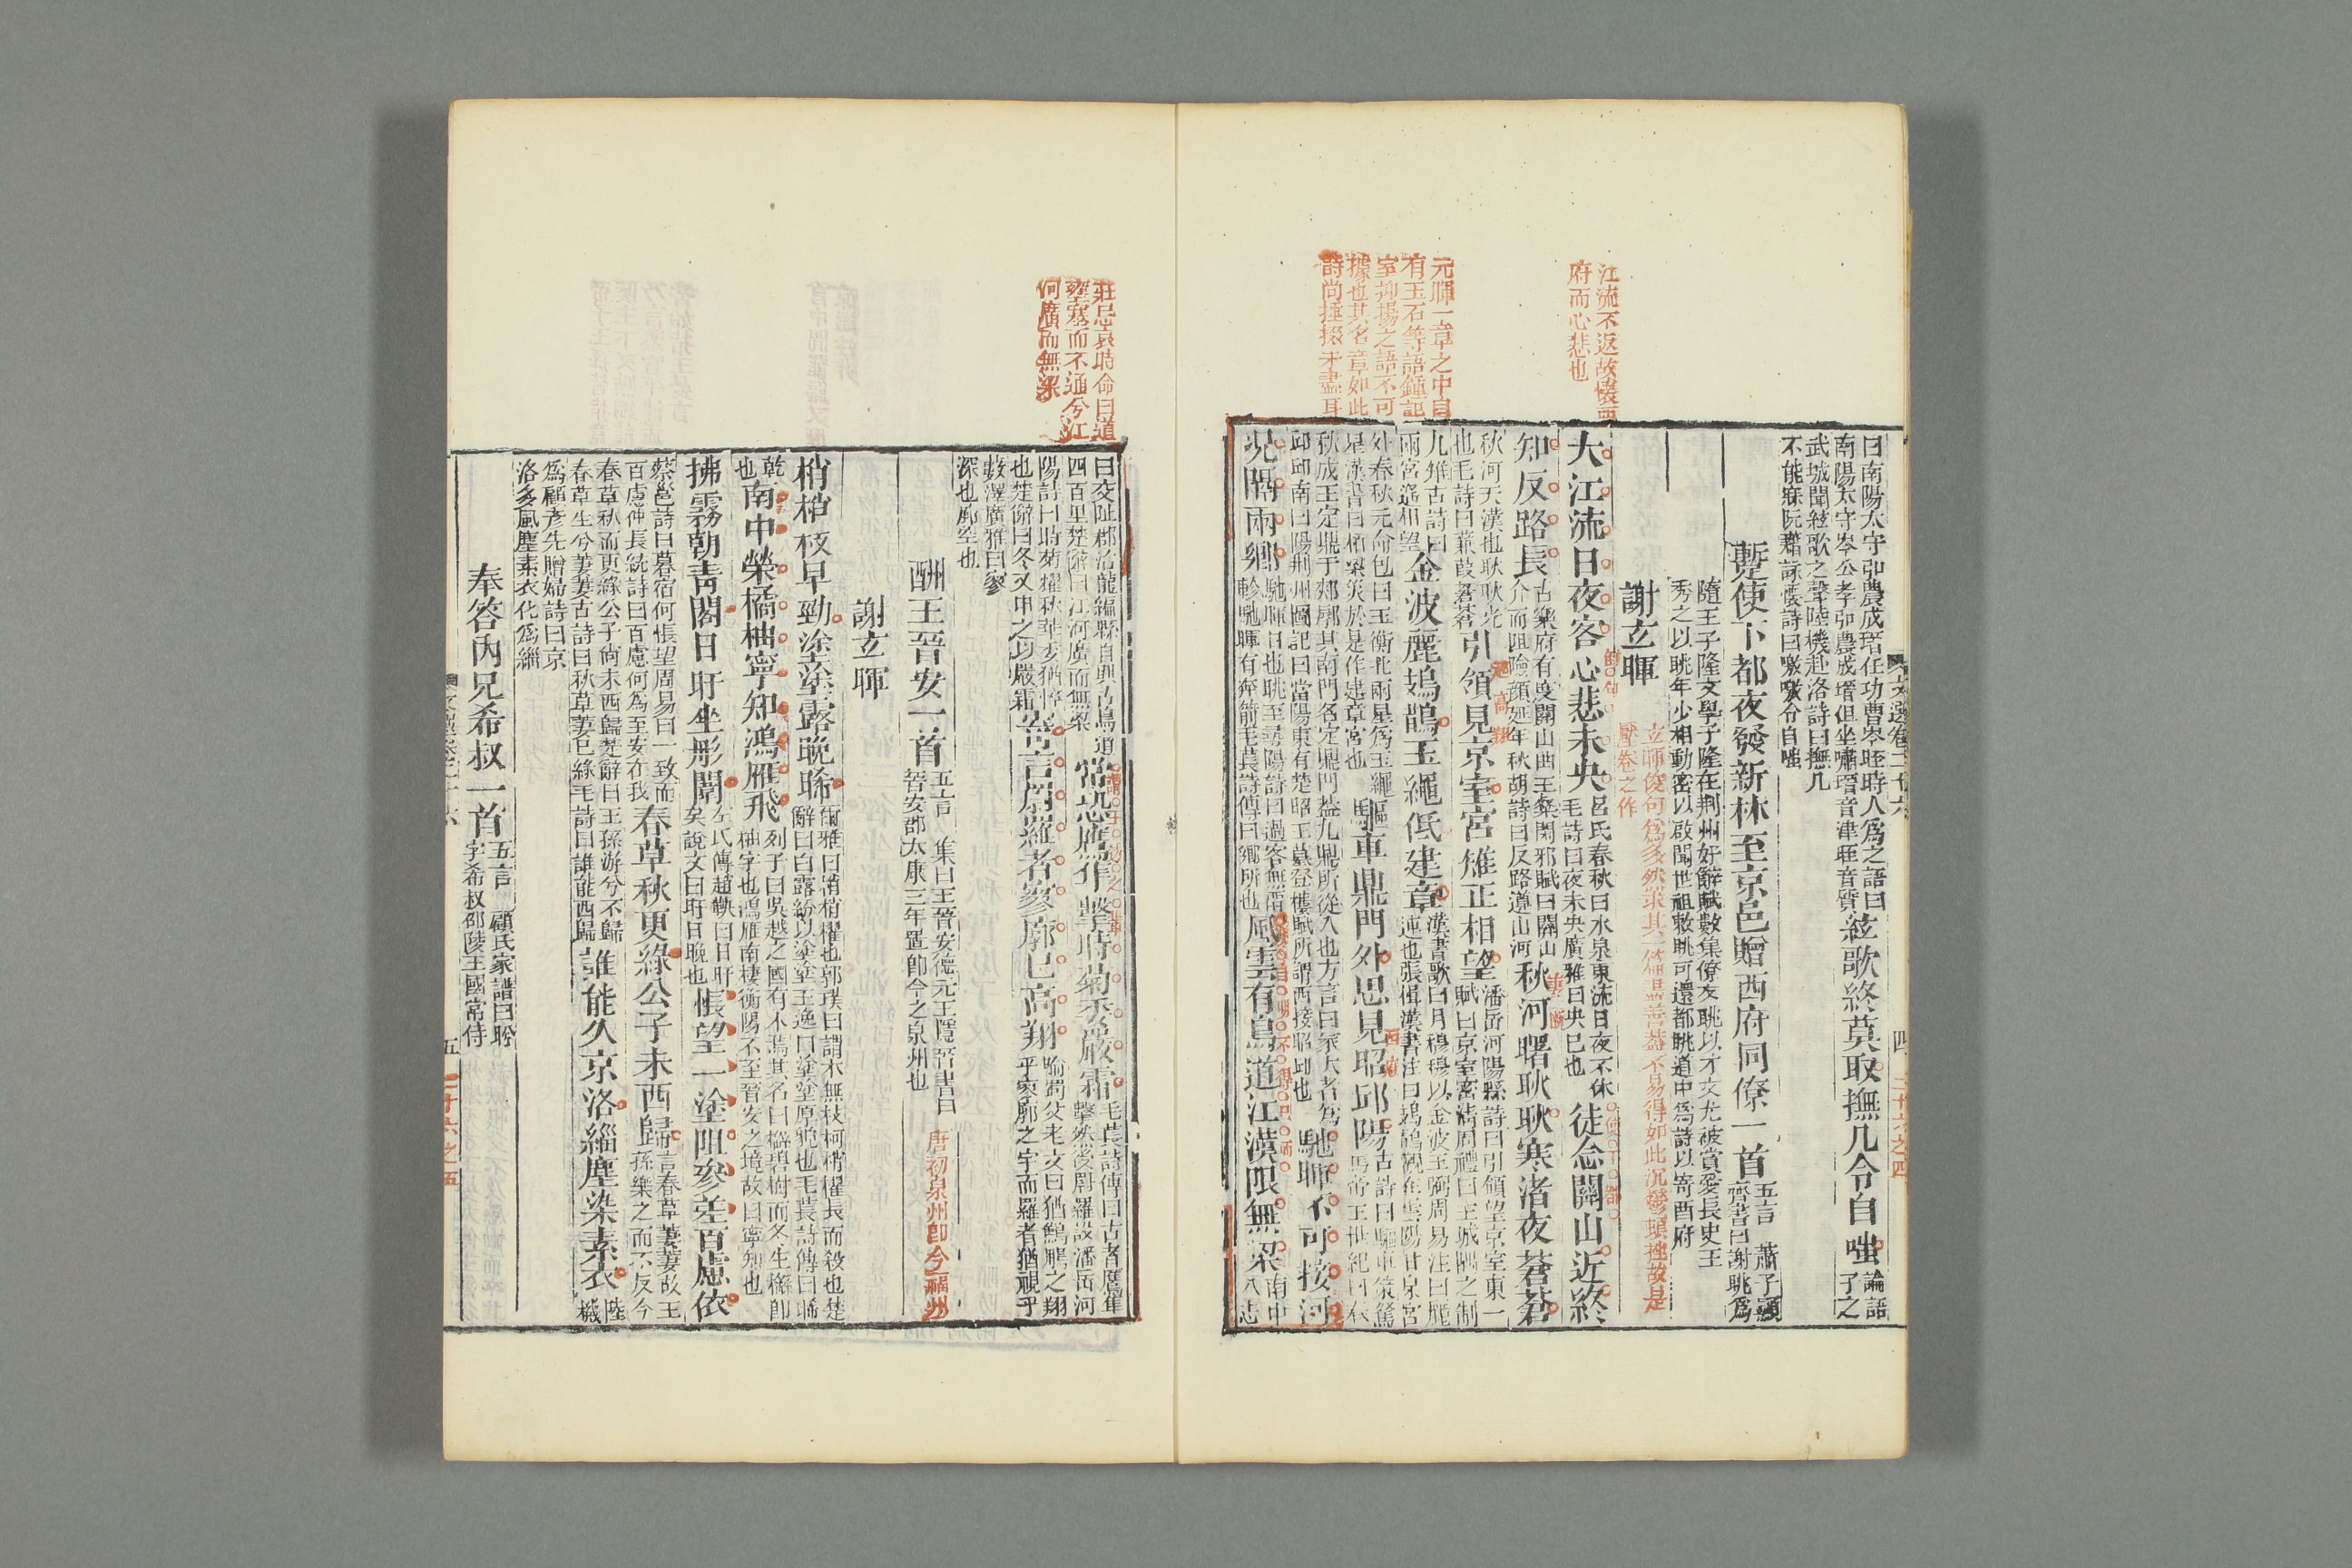 江流不返故懷西
府而心悲也
元暉一章之中自
有玉石等語鍾記
室抑揚之語不可
據也其名章如此
詩尚捶掇未盡耳
曰南陽太守弘農成瑨任功曹岑晊時人爲之語曰
南陽太守岑公孝弘農成瑨但坐嘯瑨音津晊音質
絃歌終莫取撫几令自嗤
論語
子之
武城聞絃歌之聲陸機赴洛詩曰撫几
不能寐阮籍詠懷詩曰噭噭令自嗤
暫使下都夜發新林至京邑贈西府同僚一首
五言 蕭子顯
齊書曰謝眺爲
隨王子隆文學子隆在荆州好辭賦數集僚友眺以才文尤被賞愛長史王
秀之以眺年少相動密以啟聞世祖敕眺可還都眺道中爲詩以寄西府
謝玄暉
玄暉俊句爲多然求其一篇盡善蓋不易得如此沉鬱頓挫故是
壓卷之作
大江流日夜客心悲未央
呂氏春秋曰水泉東流日夜不休
毛詩曰夜未央廣雅曰央已也
徒念關山近終
知反路長
古樂府有度關山曲王粲閑邪賦曰關山
介而阻險顏延年秋胡詩曰反路遵山河
秋河曙耿耿寒渚夜蒼蒼
秋河天漢也耿耿光
也毛詩曰蒹葭蒼蒼
引領見京室宮雉正相望
潘岳河陽縣詩曰引領望京室東一
賦曰京室密清周禮曰王城隅之制
九雉古詩曰
兩宮遙相望
金波麗鳷鵲玉繩低建章
漢書歌曰月穆穆以金波王弼周易注曰麗
連也張揖漢書注曰鳷鵲觀在雲陽甘泉宮
外春秋元命包曰玉衡北兩星爲玉繩
星漢書曰栢梁災於是作建章宮也
驅車鼎門外思見昭邱陽
古詩曰驅車策駑
馬帝王世紀曰春
秋成王定鼎于郟鄏其南門名定鼎門蓋九鼎所從入也方言曰冢大者爲
邱邱南曰陽荆州圖記曰當陽東有楚昭王墓登樓賦所謂西接昭邱也
馳暉不可接何
況隔兩鄉
馳暉日也眺至尋陽詩曰過客無留
軫馳暉有奔箭毛萇詩傳曰鄉所也
風雲有鳥道江漢限無梁
南中
八志
莊忌哀時命曰道
壅塞而不通兮江
河廣而無梁
曰交阯郡治龍編縣自興古鳥道
四百里楚辭曰江河廣而無梁
常恐鷹隼擊時菊委嚴霜
毛萇詩傳曰古者鷹隼
擊然後罻羅設潘岳河
陽詩曰時菊耀秋華李猶悴
也楚辭曰冬又申之以嚴霜
寄言罻羅者寥廓已高翔
喻蜀父老文曰猶鷦鵬之翔
乎寥廓之宇而羅者猶視乎
藪澤廣雅曰寥
深也廓空也
酬王晉安一首
五言 集曰王晉安德元王隱晉書曰
晉安郡太康三年置卽今之泉州也
唐初泉州卽今福州
謝玄暉
梢梢枝早勁塗塗露晚晞
爾雅曰梢梢櫂也郭璞曰謂木無枝柯梢櫂長而殺也楚
辭曰白露紛以塗塗王逸曰塗塗厚貌也毛萇詩傳曰晞
乾
也
南中榮橘柚寧知鴻雁飛
列子曰吳越之國有木焉其名曰櫾碧樹而冬生櫾卽
柚字也鴻雁南棲衡陽不至晉安之境故曰寧知也
拂霧朝青閣日旰坐彤闈
左氏傳趙鞅曰日旰
矣說文曰旰日晚也
悵望一塗阻參差百慮依
蔡邕詩曰暮宿何悵望周易曰一致而
百慮仲長統詩曰百慮何為至安在我
春草秋更綠公子未西歸
言春草萋萋故王
孫樂之而不反今
春草秋而更綠公子尚未西歸楚辭曰王孫游兮不歸
春草生兮萋萋古詩曰秋草萋已綠毛詩曰誰能西歸
誰能久京洛緇塵染素衣
陸
機
爲顧彥先贈婦詩曰京
洛多風塵素衣化爲緇
奉答內兄希叔一首
五言 顧氏家譜曰盻
字希叔邵陵王國常侍
五
二十六之五